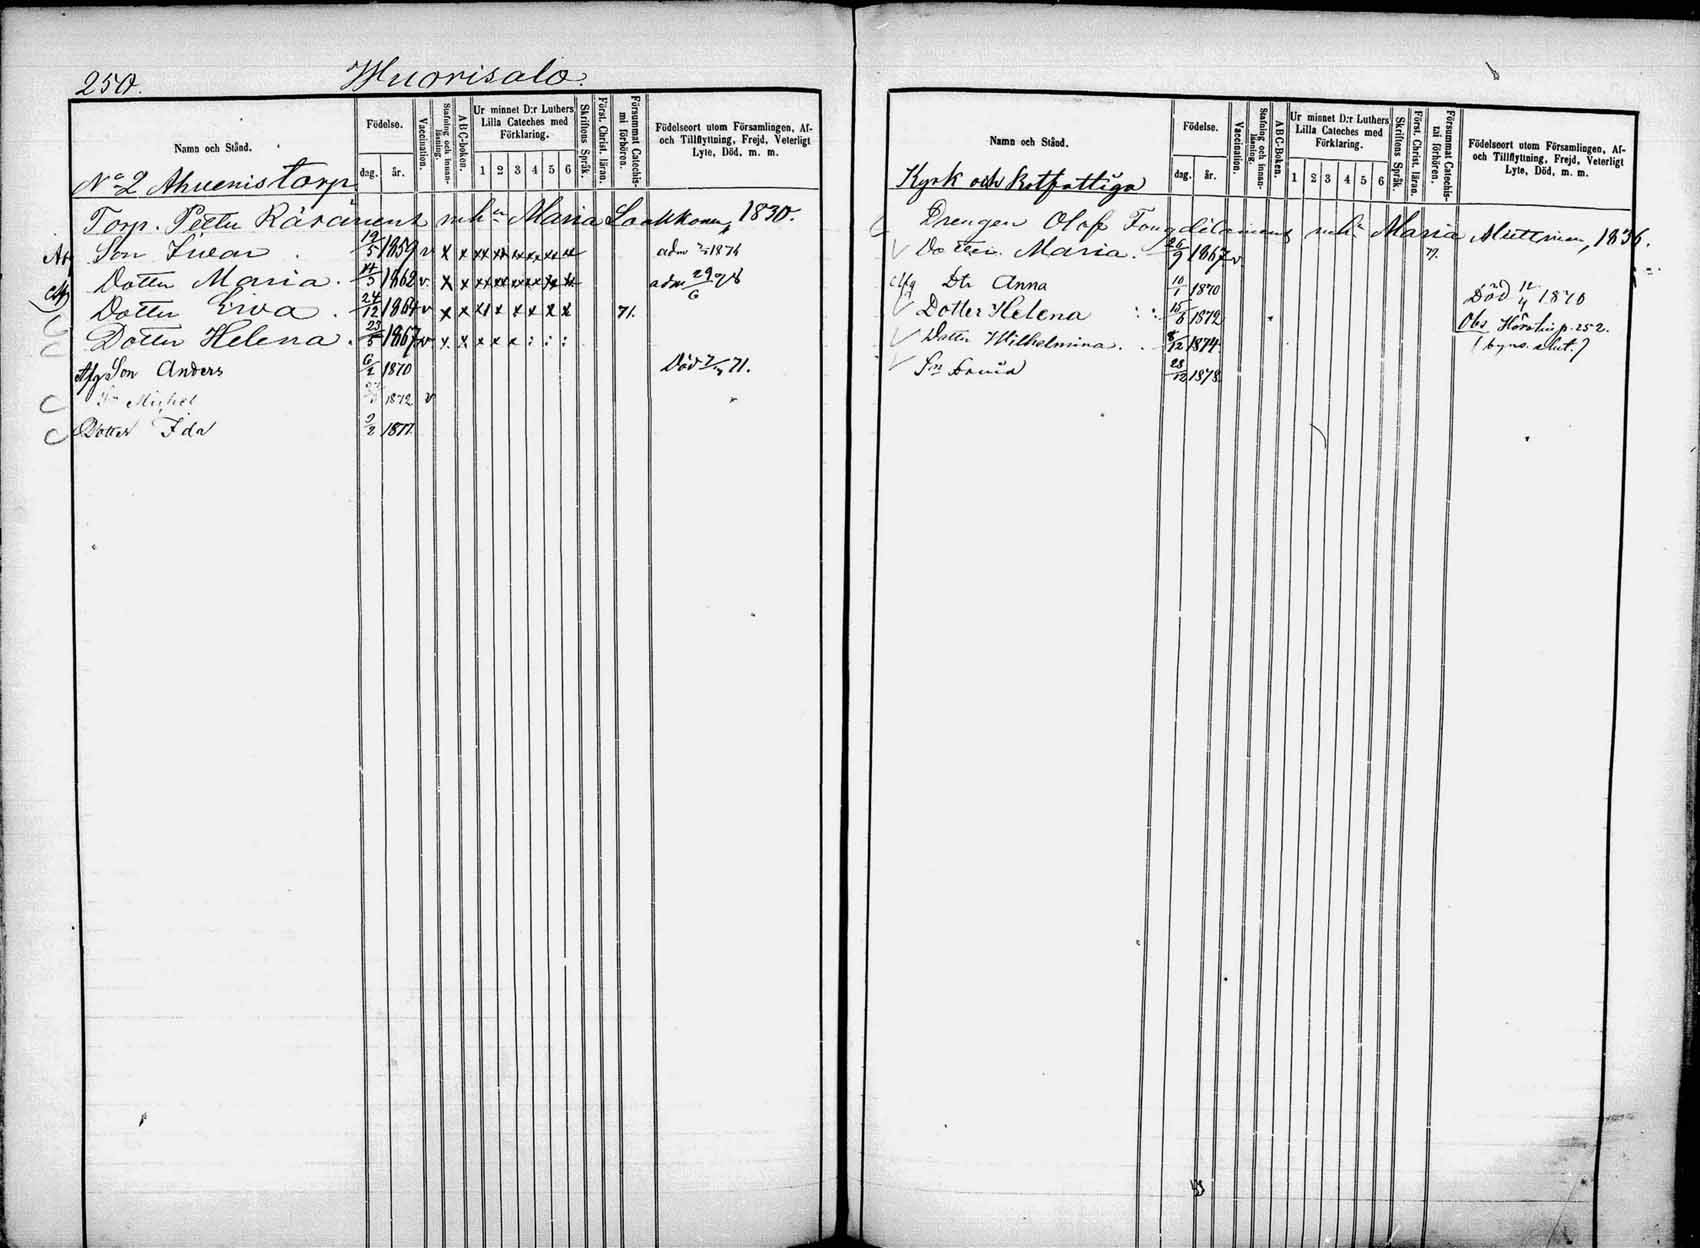 250. Wuorisalo.
Namn och Stånd.
Födelse.
dag. år.
Vaccination.
Stafning och innan-
läsning.
ABC-boken.
Ur minnet D:r Luthers
Lilla Cateches med
Förklaring.
1 2 3 4 5 6
Skriftens Språk.
Först. Christ. läran.
Försummat Catechis-
mi förhören.
Födelseort utom Församlingen, Af-
och Tillflyttning, Frejd, Veterligt
Lyte, Död. m. m.
No 2 Ahvenis torp
Torp. Petter Räsänens Maria Laakkonen, 1830.
Son Iwar . 19/5 1859 v x x xx xx xx xx xx xx adm 1876
Dotter Maria . 14/3 1862 v. x x xx xx xx xx xx xx adm 29/6 78
Dotter Ewa . 24/12 1864 v x x x x x x x x 71.
Dotter Helena . 23/5 1867 v x x x x x : : :
Afg Son Anders 6/2 1870 Död 71.
Sn Michel 1872 v
Dotter Ida 2/2 1877.
Namn och Stånd.
Födelse.
dag. år.
Vaccination.
Stafning och innan-
läsning.
ABC-Boken.
Ur minnet D:r Luthers
Lilla Cateches med
Förklaring.
1 2 3 4 5 6
Skriftens Språk.
Först. Christ. läran.
Försummat Catechis-
mi förhören.
Födelseort utom Församlingen, Af-
och Tillflyttning, Frejd, Veterligt
Lyte, Död. m. m.
Kyrk och Rotfattiga
Drengen Olof Maria 1836.
Dotter Maria. 26/9 1867 v. 77.
Afg Dtr Anna 10/1 1870 Död 12/4 1870
Dotter Helena 1872 Obs p. 252.
Dotter Wilhelmina. 8/12 1874. slut.)
Sn 28/12 1878.